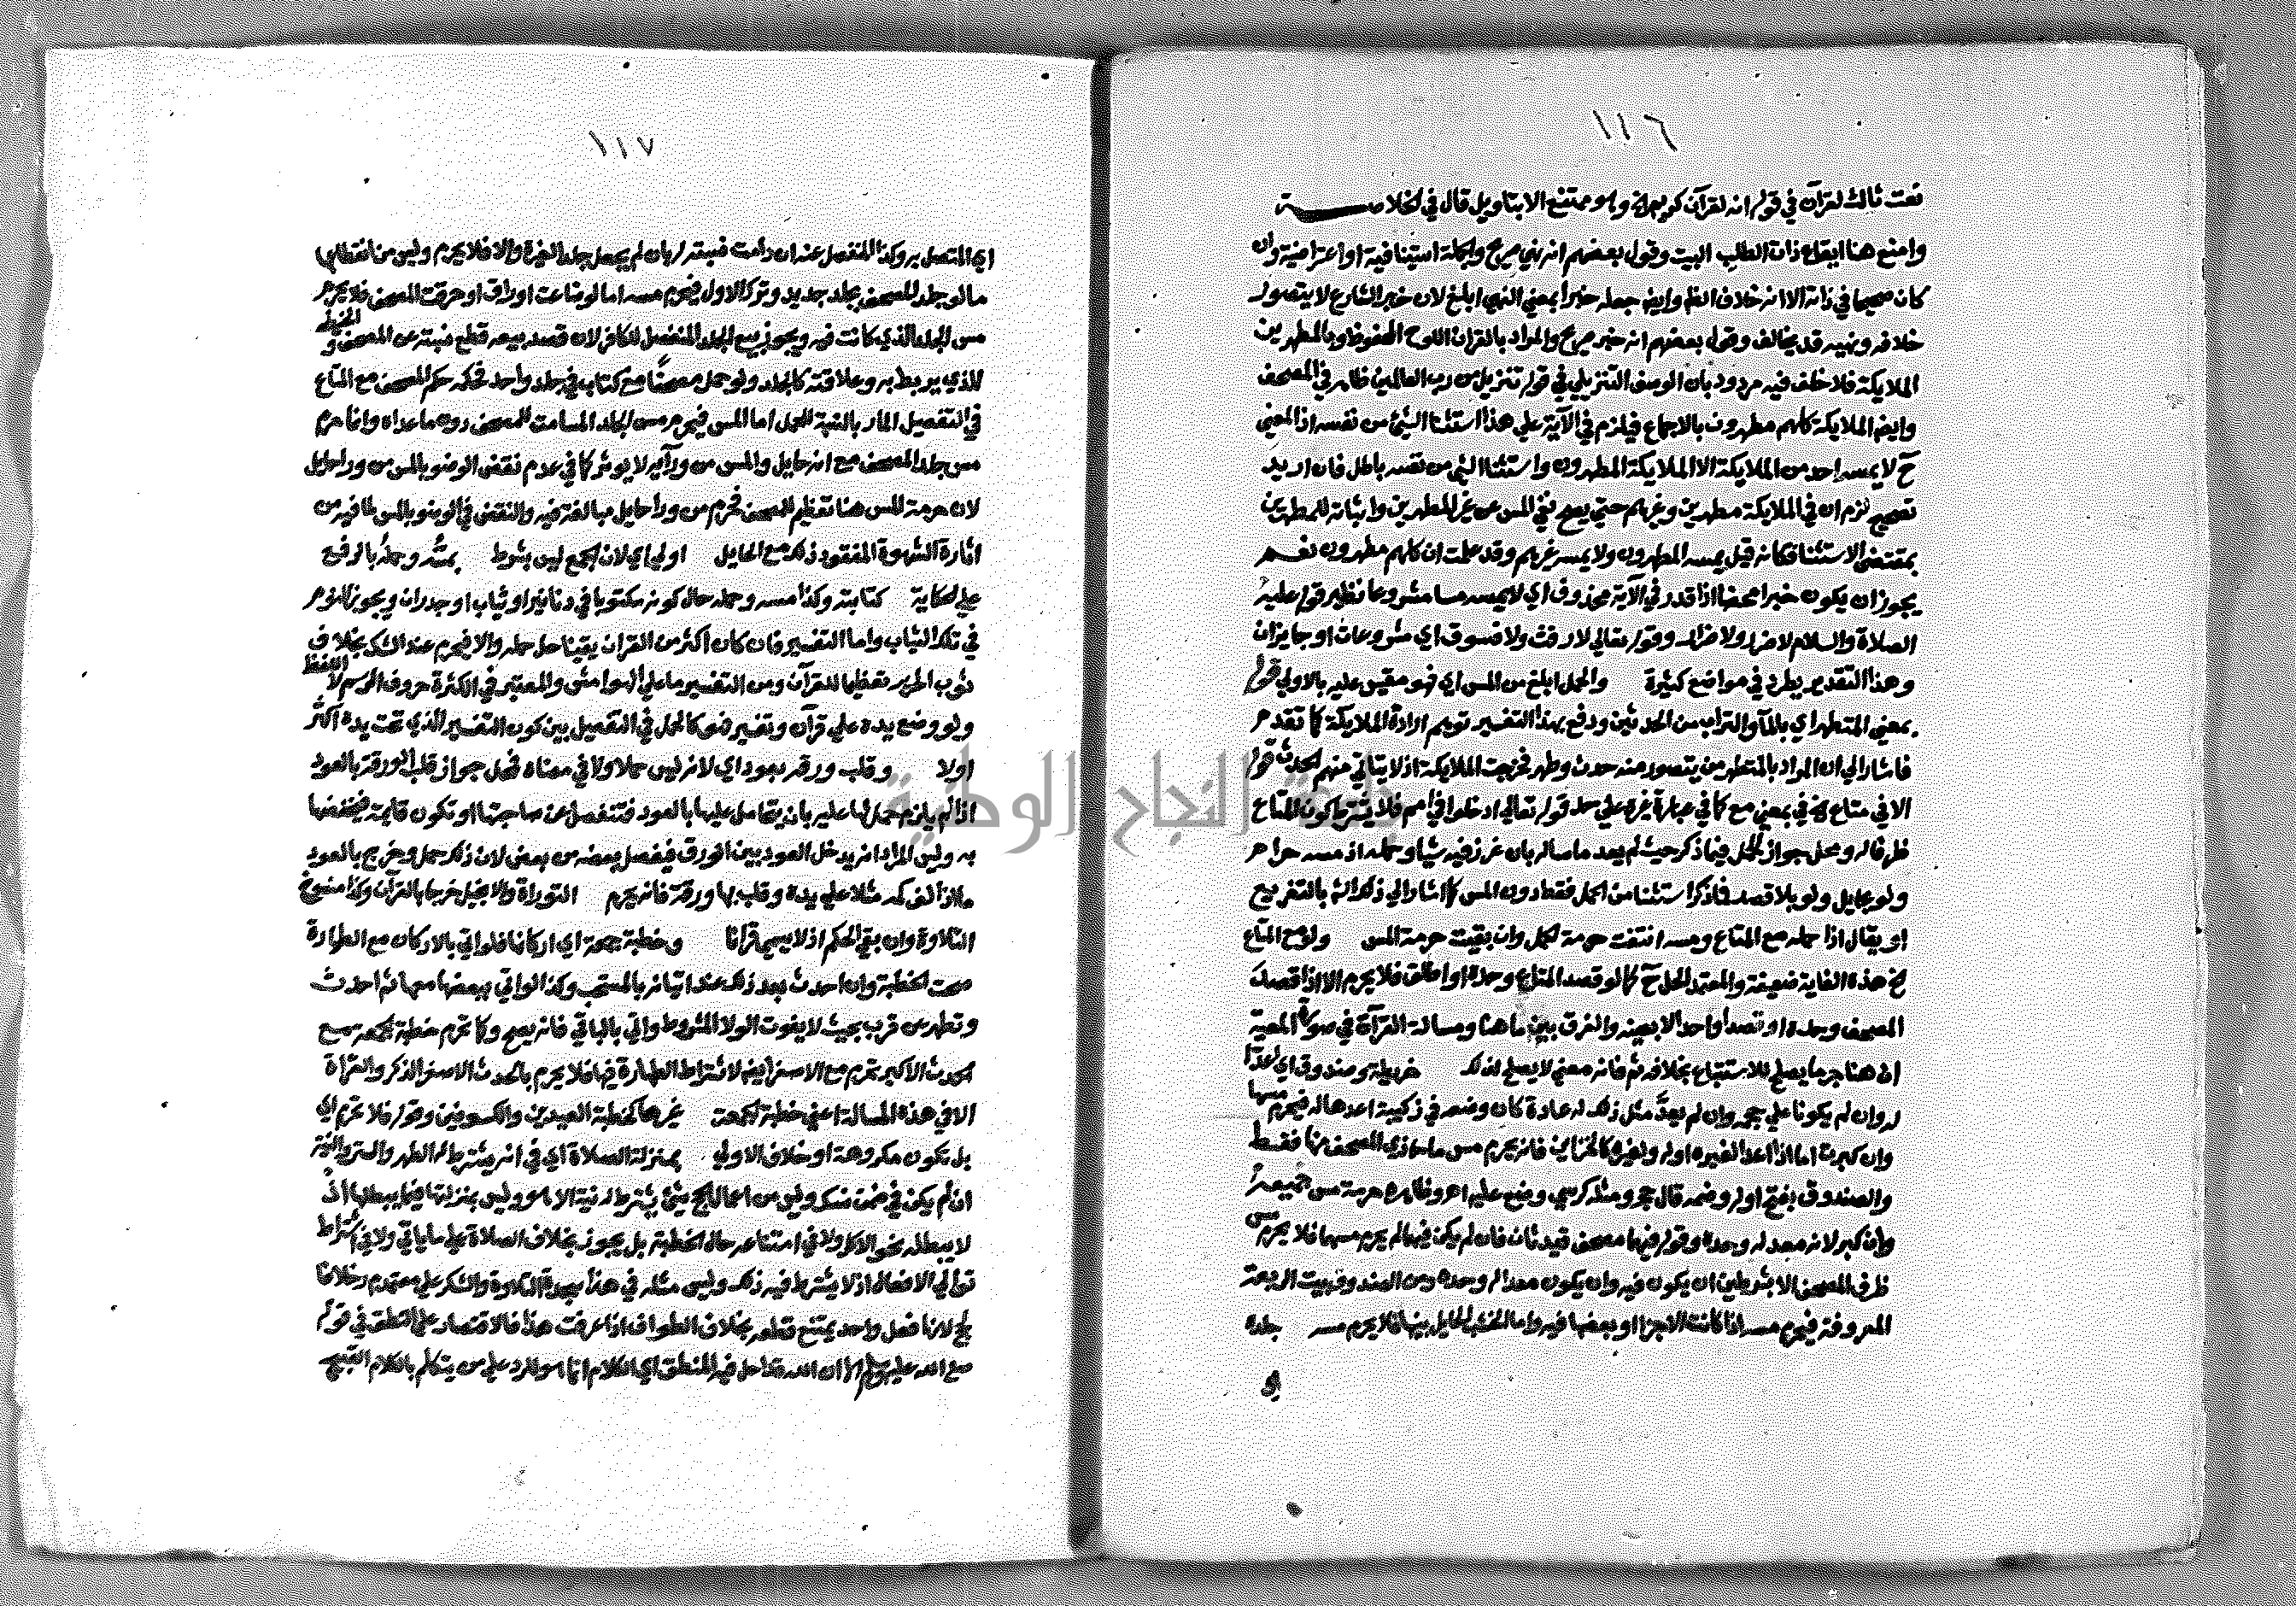 ١١٦
نعت ثالث لقرآن في قوله انه لقرآن كريم الخ وهو ممتنع الا بتاويل قال في الخلاصة
وامنع هنا ايقاع ذات الطلب البيت وقول بعضهم انه نهي صريح والجملة استينافية او اعتراضية وان
كان صحيحا في ذاته الا انه خلاف الظم وايضا جعله خبرا بمعني النهي ابلغ لان خبر الشارع لا يتصور
خلافه ونهيه قد يخالف وقول بعضهم انه خبر صريح والمراد بالقران اللوح المحفوظ وبالمطهرين
الملايكة فلا خلف فيه مردود بان الوصف التنزيلي في قوله تنزيل من رب العالمين ظاهر في المصحف
وايضا الملايكة كلهم مطهرون بالاجماع فيلزم في الآية علي هذا استثنا الشئ من نفسه اذ المعني
ح لا يمسه احد من الملايكة الا الملايكة المطهرون واستثنا الشي من نفسه باطل فان اريد
تصحيح لزم ان في الملايكة مطهرين وغيرهم حتي يصح نفي المس عن غير المطهرين واثباته للمطهرين
بمقتضي الاستثنا فكانه قيل يمسه المطهرون ولا يمسه غيرهم وقد علمت ان كلهم مطهرون نعم
يجوز ان يكون خبرا محضا اذا قدر في الآية محذوف اي لا يمسه مسا مشروعا نظير قوله عليه
الصلاة والسلام لا ضرر ولا ضرار وقوله تعالي لا رفث ولا فسوق اي مشروعات او جايزان
وهذا التقدير يطرد في مواضع كثيرة والحمل ابلغ من المس اي فهو مقيس عليه بالاولي قوله
بمعني المتطهر اي بالمآ والتراب من الحدثين ودفع بهذا التفسير توهم ارادة الملايكة كما تقدم
فاشار الي ان المراد بالمتطهر من يتصور منه حدث وطهر فخرجت الملايكة اذ لا يتاتي منهم الحدث قوله
الا في متاع في بمعني مع كما في عبارة غيره علي حد قوله تعالي ادخلوا في امم فلا يشترط كون المتاع
ظرفا له ومحل جواز الحمل فيما ذكر حيث لم يعد ماسا له بان غرز فيه شيا وحمله اذ مسه حرام
ولو بحايل ولو بلا قصد فما ذكر استثنا من الحمل فقط دون المس كما اشار الي ذلك الش بالتفريع
او يقال اذا حمله مع المتاع ومسه انتفت حرمة الحمل وان بقيت حرمة المس ولو مع المتاع
الخ هذه الغاية ضعيفة والمعتمد الحل ح كما لو قصد المتاع وحده او اطلق فلا يحرم الا اذا قصد
المصحف وحده او قصد واحدا لا بعينه والفرق بين ما هنا ومسالة القرآة في صورة المعية
ان هنا جرما يصلح للاستتباع بخلافه ثم فانه معني لا يصلح لذلك خريطة وصندوق اي اعدا
له وان لم يكونا علي حجمه وان لم يعد مثل ذلك له عادة كان وضعه في زكيبة اعدها له فيحرم مسها
وان كبرت اما اذا اعدا لغيره اوله ولغيره كالخزاين فانه يحرم مس ما حاذي المصحف منها فقط
والصندوق بفتح اوله وضمه قال حج ومثله كرسي وضع عليه اهـ وظاهره حرمة مس جميعه
وان كبر لانه معد له وحده وقوله فيهما مصحف قيد ثان فان لم يكن فيهما لم يحرم مسهما فلا يحرم مس
ظرف المصحف الا بشرطين ان يكون فيه وان يكون معدا له وحده ومن الصندوق بيت الربعة
المعروفة فيحرم مسه اذا كانت الاجزا او بعضها فيه واما الخشب الحايل بينها فلا يحرم مسه جلده
١١٧
اي المتصل به وكذا المنفصل عنه ان دامت نسبته له بان لم يجعل جلدا لغيره والا فلا يحرم وليس من انقطاعها
ما لو جلد المصحف بجلد جديد وترك الاول فيحرم مسه اما لو ضاعت اوراق او حرقت المصحف فلا يحرم
مس الجلد الذي كانت فيه ويجوز بيع الجلد المنفصل للكافر لان قصد بيعه قطع نسبته عن المصحف والخيط
الذي يربط به وعلاقته كالجلد ولو حمل مصحفا مع كتاب في جلد واحد فحكمه حكم المصحف مع المتاع
في التفصيل المار بالنسبة للحمل اما المس فيحرم مس الجلد المسامت للمصحف دون ما عداه وانما حرم
مس جلد المصحف مع انه حايل والمس من ورآيه لا يوثر كما في عدم نقض الوضو بالمس من ورا حايل
لان حرمة المس هنا تعظيم للمصحف فحرم من ورا حايل مبالغة فيه والنقض في الوضو بالمس لما فيه من
اثارة الشهوة المفقود ذلك مع الحايل اولي اي لان الجمع ليس بشرط بمسه وحمله بالرفع
علي الحكاية كتابته وكذا مسه وحمله حال كونه مكتوبا في دنانير او ثياب او جدران ويجوز النوم
في تلك الثياب واما التفسير فان كان اكثر من القران يقينا حل حمله والا فيحرم عند الشك بخلاف
ثوب الحرير تعظيما للقرآن ومن التفسير ما علي الهوامش والمعتبر في الكثرة حروف الرسم لا اللفظ
ولو وضع يده علي قرآن وتفسير فهو كالحمل في التفصيل بين كون التفسير الذي تحت يده اكثر
اولا وقلب ورقه بعود اي لانه ليس حملا ولا في معناه فمحل جواز قلب الورقة بالعود
اذا لم يلزم حملها عليه بان يتحامل عليها بالعود فتنفصل عن صاحبتها او تكون قايمة فيخفضها
به وليس المراد انه يدخل العود بين الورق فيفصل بعضه من بعض لان ذلك حمل وخرج بالعود
ما اذا لف كمه مثلا علي يده وقلب بها ورقة فانه يحرم التوراة والانجيل خرجا بالقرآن وكذا منسوخ
التلاوة وان بقي الحكم اذ لا يسمي قرانا وخطبة جمعة اي اركانها فلو اتي بالاركان مع الطهارة
صحت الخطبة وان احدث بعد ذلك عند اتيانه بالمستحب وكذا لو اتي ببعضها معها ثم احدث
وتطهر عن قرب بحيث لا يفوت الولا المشروط واتي بالباقي فانه يصح وكما تحرم خطبة الجمعة مع
الحدث الاكبر تحرم مع الاصغر ايضا لاشتراط الطهارة فيها فلا يحرم بالحدث الاصغر الذكر والقرآة
الا في هذه المسالة اعني خطبة الجمعة غيرها كخطبة العيدين والكسوفين وقوله فلا تحرم اي
بل تكون مكروهة او خلاف الاولي بمنزلة الصلاة اي في انه يشترط له الطهر والستر والنية
ان لم يكن في ضمن نسك وليس من اعمال الحج شئ يشترط له نية الا هو وليس بمنزلتها فيما يبطلها اذ
لا يبطله نحو الاكل ولا في امتناعه حال الخطبة بل يجوز بخلاف الصلاة علي ما ياتي ولا في اشتراط
توالي الافعال اذ لا يشترط فيه ذلك وليس مثله في هذا سجدة التلاوة والشكر علي معتمد م ر خلافا
لحج لانها فعل واحد يمتنع قطعه بخلاف الطواف اذا عرفت هذا فالاقتصار علي المنطق في قوله
صلي الله عليه وسلم الا ان الله قد احل فيه المنطق اي الكلام انما هو للرد علي من يتكلم بالكلام القبيح